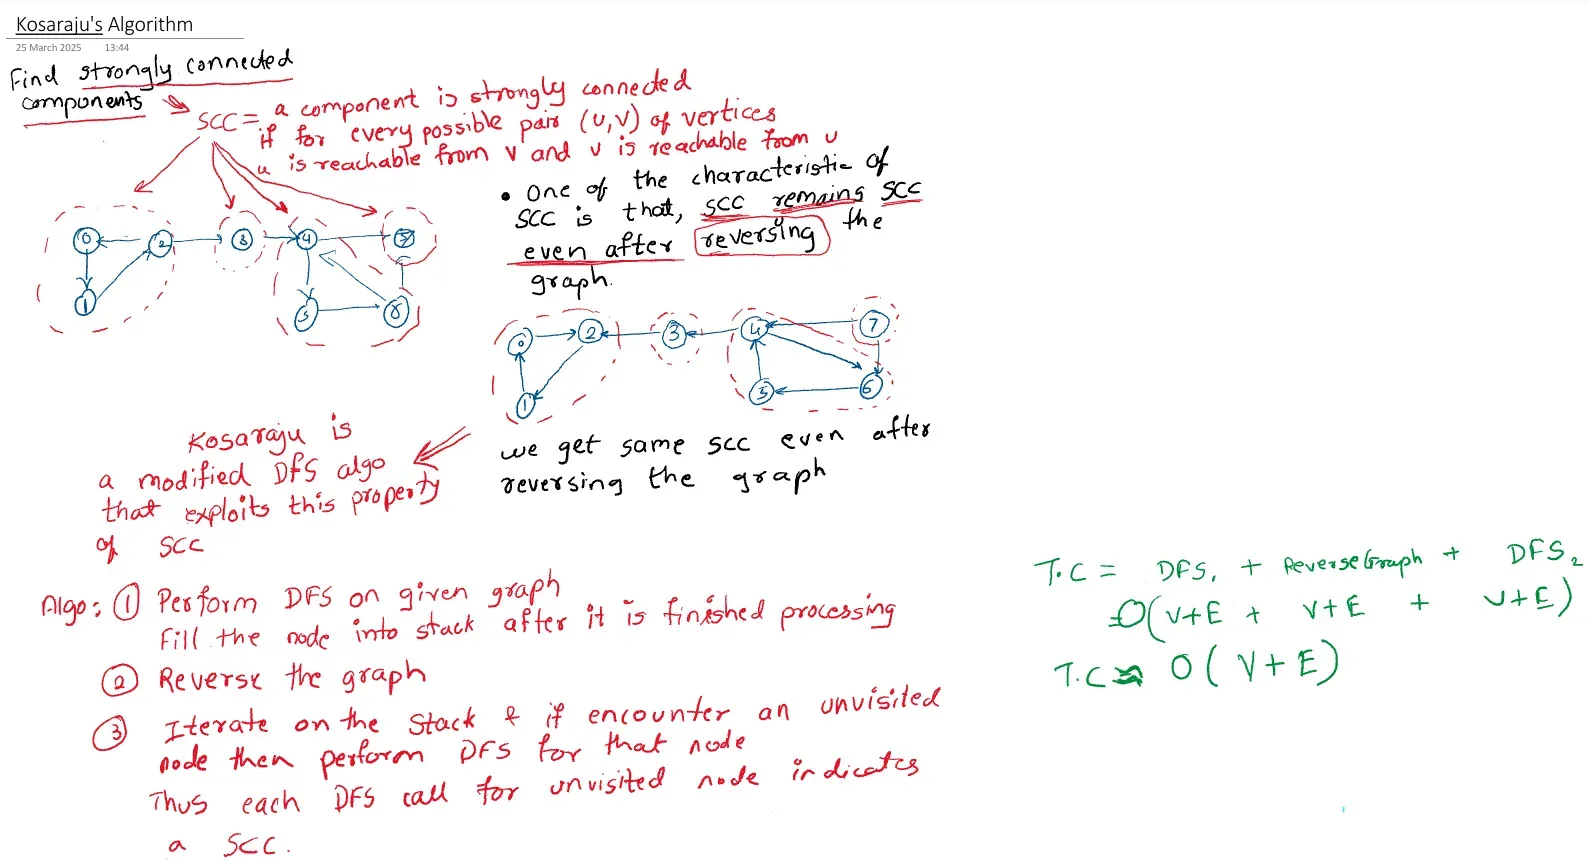 Kosaraju's Algorithm
25 March 2025 13:44
Find strongly connected
components
SCC = a component is strongly connected
if for every possible pair (u,v) of vertices
u is reachable from v and v is reachable from u
• One of the characteristic of
SCC is that, SCC remains SCC
even after reversing the
graph.
0 2 3 4
1 5 6
0 2 3 4 7
1 5 6
we get same scc even after
reversing the graph
Kosaraju is
a modified DFS algo
that exploits this property
of SCC
Algo: ① Perform DFS on given graph
Fill the node into stack after it is finished processing
② Reverse the graph
③ Iterate on the stack & if encounter an unvisited
node then perform DFS for that node
Thus each DFS call for unvisited node indicates
a SCC.
T.C = DFS₁ + ReverseGraph + DFS₂
= O(V+E + V+E + V+E)
T.C ≈ O(V+E)